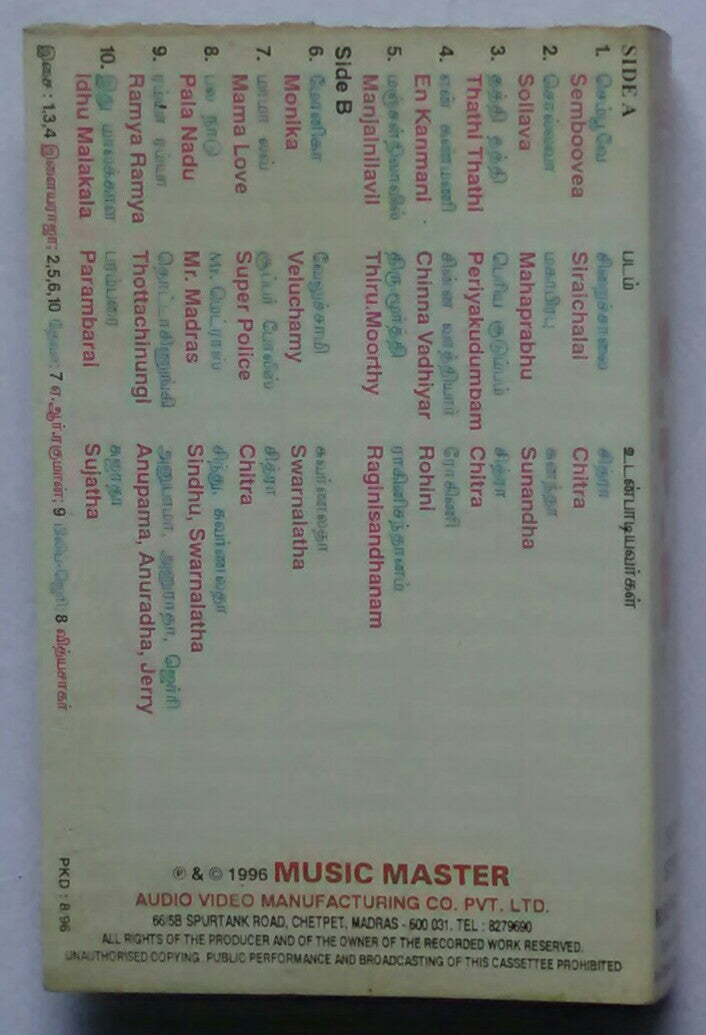 SIDE A படம் உடன்பாடியவர்கள்
1. செம்பூவே சிறைச்சாலை சித்ரா
Semboovea Siraichalai Chitra
2. சொல்லவா மகாபிரபு சுனந்தா
Sollava Mahaprabhu Sunandha
3. தத்தி தத்தி பெரிய குடும்பம் சித்ரா
Thathi Thathi Periyakudumbam Chitra
4. என் கண்மணி சின்ன வாத்தியார் ரோகிணி
En Kanmani Chinna Vadhiyar Rohini
5. மஞ்சள்நிலாவில் திருமூர்த்தி ராகினிசந்தானம்
Manjalnilavil Thiru.Moorthy Raginisandhanam
Side B
6. மோனிகா வேலுச்சாமி சுவர்ணலதா
Monika Veluchamy Swarnalatha
7. மாமா லவ் சூப்பர் போலீஸ் சித்ரா
Mama Love Super Police Chitra
8. பல நாடு Mr. மெட்ராஸ் சிந்து, சுவர்ணலதா
Pala Nadu Mr. Madras Sindhu, Swarnalatha
9. ரம்யா ரம்யா தொட்டாசிணுங்கி அனுபாமா, அனுராதா, ஜெர்ரி
Ramya Ramya Thottachinungi Anupama, Anuradha, Jerry
10. இது மாலக்கால பரம்பரை சுஜாதா
Idhu Malakala Parambarai Sujatha
இசை : 1,3,4 இளையராஜா; 2,5,6,10 தேவா; 7 ஏ.ஆர்.ரகுமான்; 9 பிலிப்-ஜெர்ரி; 8 வித்யாசாகர்
℗ & © 1996 MUSIC MASTER
AUDIO VIDEO MANUFACTURING CO. PVT. LTD.
66/5B SPURTANK ROAD, CHETPET, MADRAS - 600 031. TEL : 8279690
ALL RIGHTS OF THE PRODUCER AND OF THE OWNER OF THE RECORDED WORK RESERVED.
UNAUTHORISED COPYING, PUBLIC PERFORMANCE AND BROADCASTING OF THIS CASSETTEE PROHIBITED
PKD : 8 96